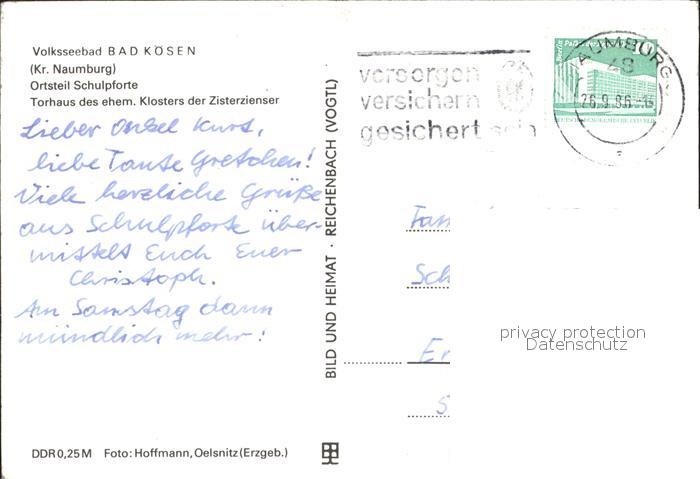 Volksseebad BAD KÖSEN
(Kr. Naumburg)
Ortsteil Schulpforte
Torhaus des ehem. Klosters der Zisterzienser
Lieber Onkel Kurt,
liebe Tante Gretchen!
Viele herzliche Grüße
aus Schulpforte über-
mittelt Euch Euer
Christoph.
Am Samstag dann
mündlich mehr!
DDR 0,25 M Foto: Hoffmann, Oelsnitz (Erzgeb.)
BILD UND HEIMAT · REICHENBACH (VOGTL)
vorsorgen
versichern
gesichert sein
NAUMBURG
48
26.9.86
Berlin
DEUTSCHE DEMOKRATISCHE REPUBLIK
Fam
Sch
Er
5
privacy protection
Datenschutz